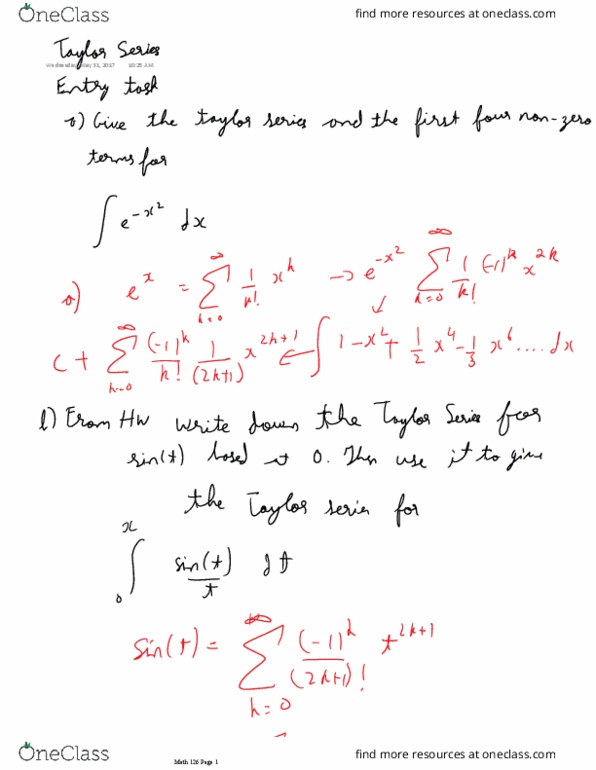 OneClass find more resources at oneclass.com
Taylor Series
Wednesday, May 31, 2017 10:25 AM
Entry task
a) Give the taylor series and the first four non-zero
terms for
∫ e^{-x^2} dx
a) e^x = ∑_{k=0}^{∞} 1/k! x^k → e^{-x^2} ∑_{k=0}^{∞} 1/k! (-1)^k x^{2k}
↓
C + ∑_{k=0}^{∞} (-1)^k/k! 1/(2k+1) x^{2k+1} ← ∫ 1 - x^2 + 1/2 x^4 - 1/3 x^6 .... dx
b) From HW write down the Taylor Series for
sin(t) based at 0. Then use it to give
the Taylor series for
∫_0^x sin(t)/t dt
sin(t) = ∑_{k=0}^{∞} (-1)^k/(2k+1)! t^{2k+1}
Math 126 Page 1
OneClass find more resources at oneclass.com